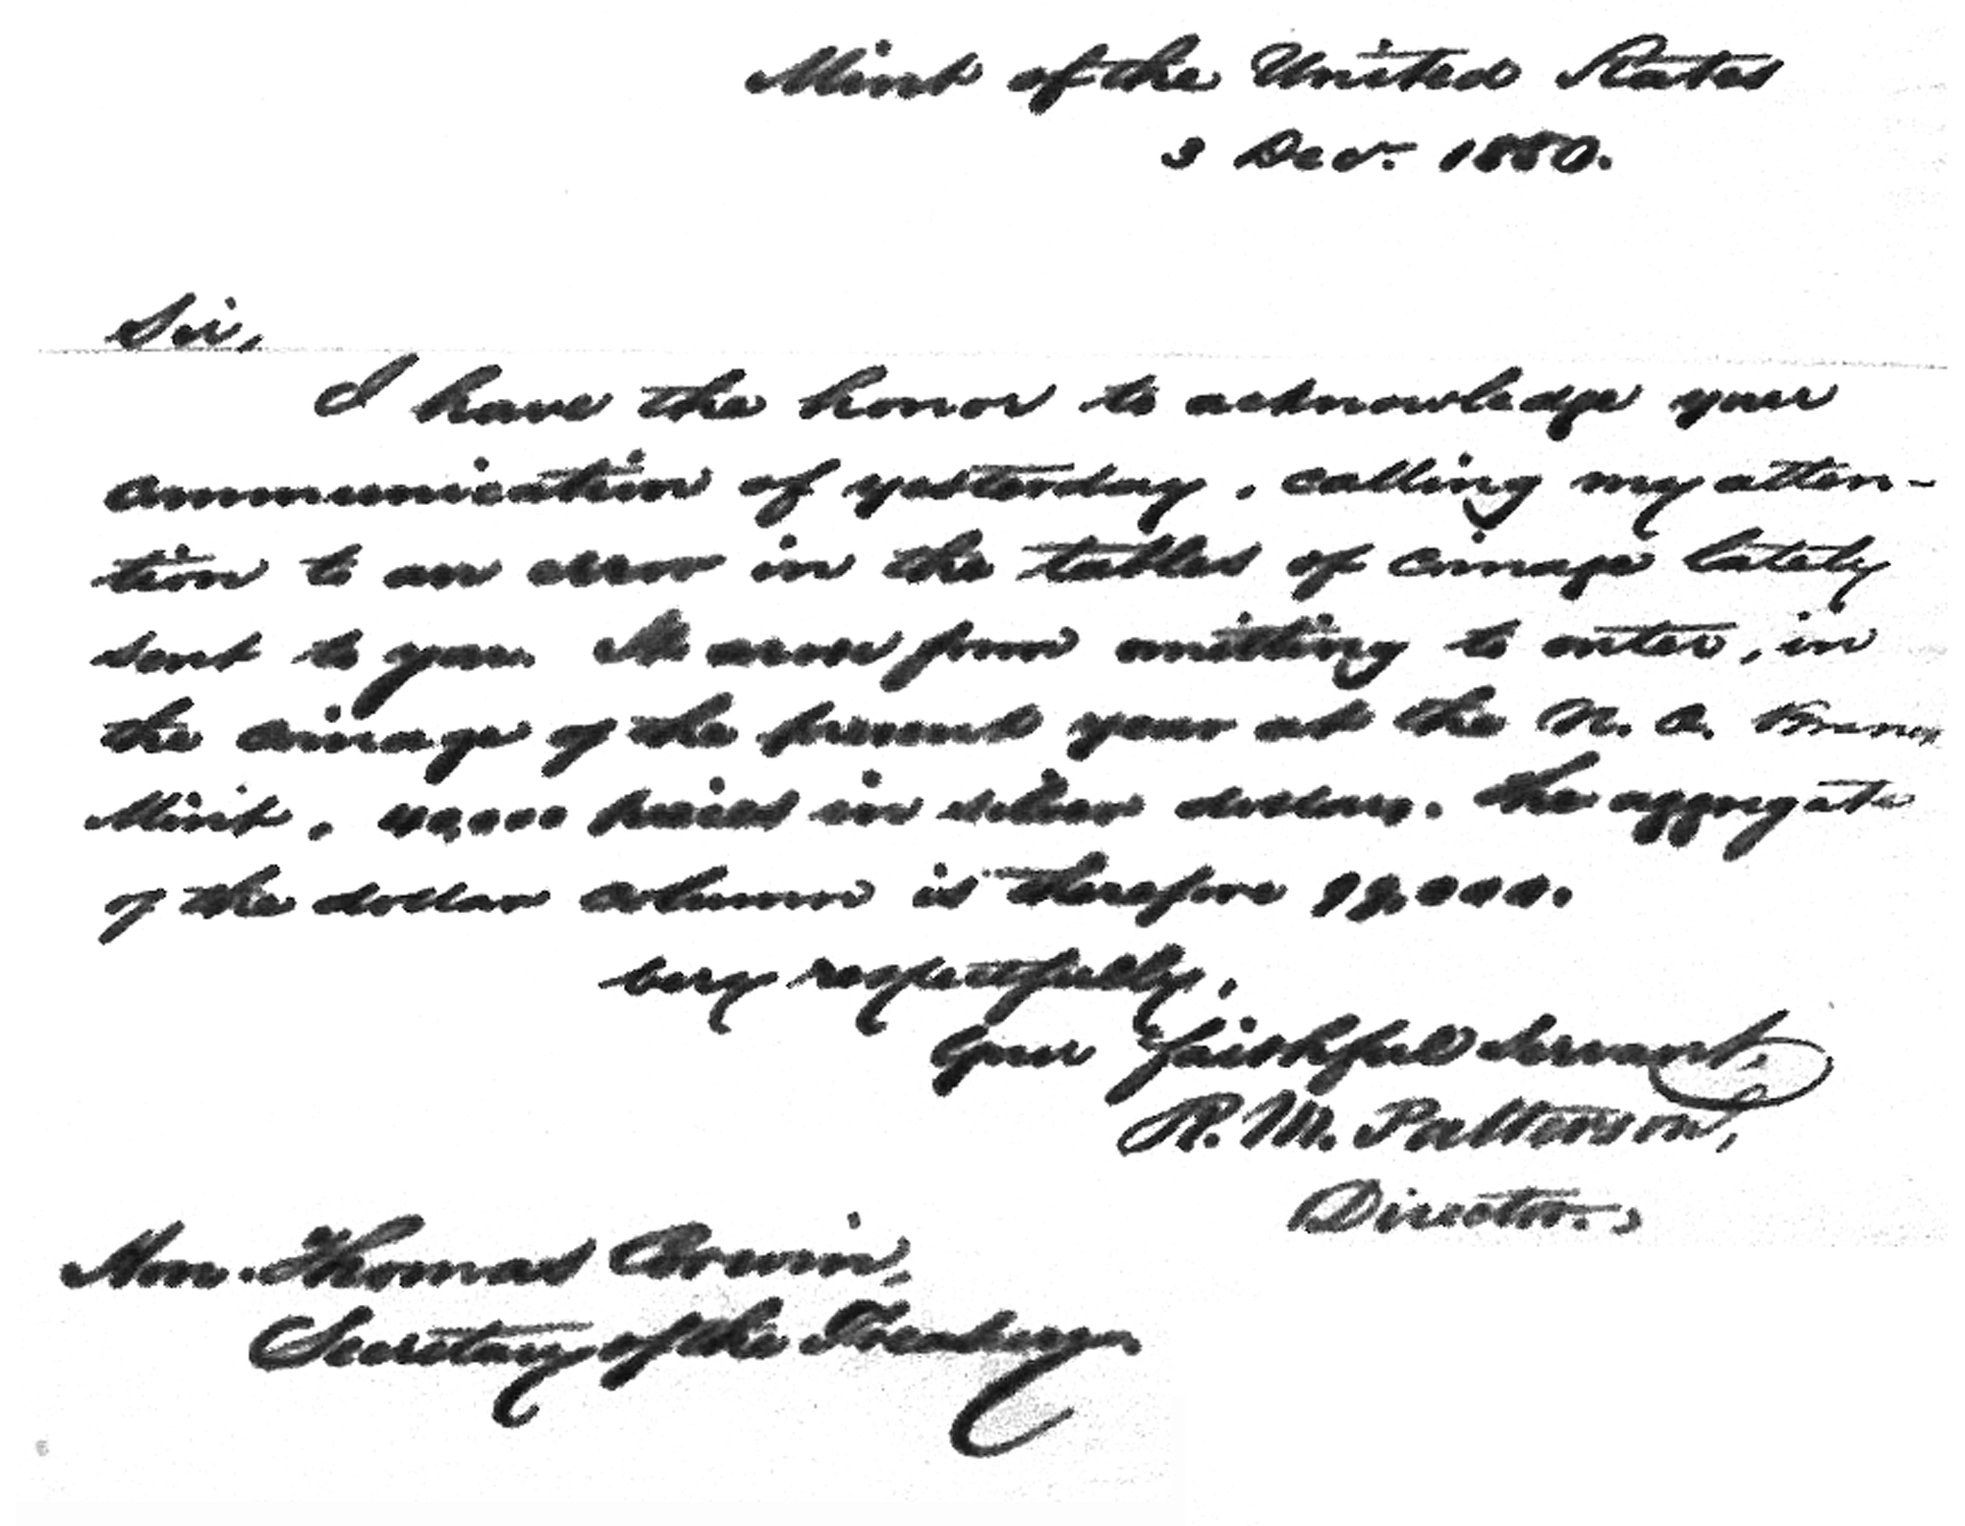 Mint of the United States
3 Decr. 1850.
Sir,
I have the honor to acknowledge your
communication of yesterday, calling my atten-
tion to an error in the tables of coinage lately
sent to you. It arose from omitting to enter, in
the coinage of the present year at the N. O. Branch
Mint, 40,000 pieces in silver dollars. The aggregate
of the dollar column is therefore
very respectfully,
Your faithful Servant,
R. M. Patterson,
Director.
Hon. Thomas Corwin,
Secretary of the Treasury.